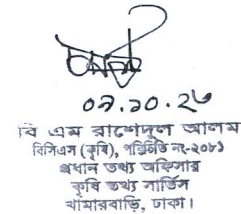 ০৯.১০.২৩
বি এম রাশেদুল আলম
বিসিএস (কৃষি), পরিচিতি নং-২০৮১
প্রধান তথ্য অফিসার
কৃষি তথ্য সার্ভিস
খামারবাড়ি, ঢাকা।